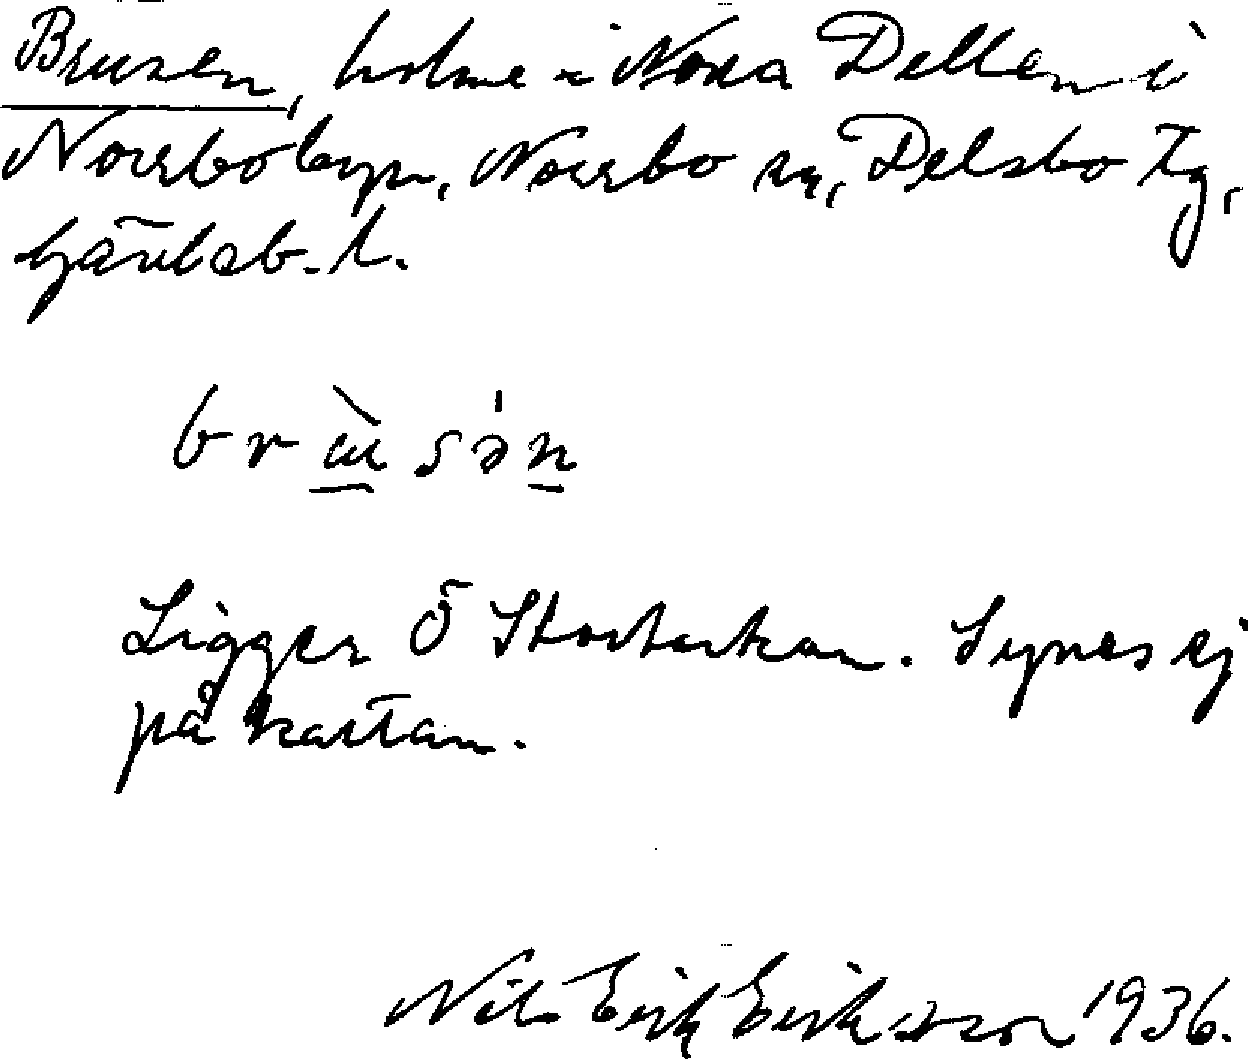 Brusen, holme i Norra Dellen i
Norrbobyn, Norrbo sn, Delsbo tg,
Gävleb. l.
brùsə̀n
Ligger Ö Storburkan. Synes ej
på kartan.
Nils Erik Eriksson 1936.